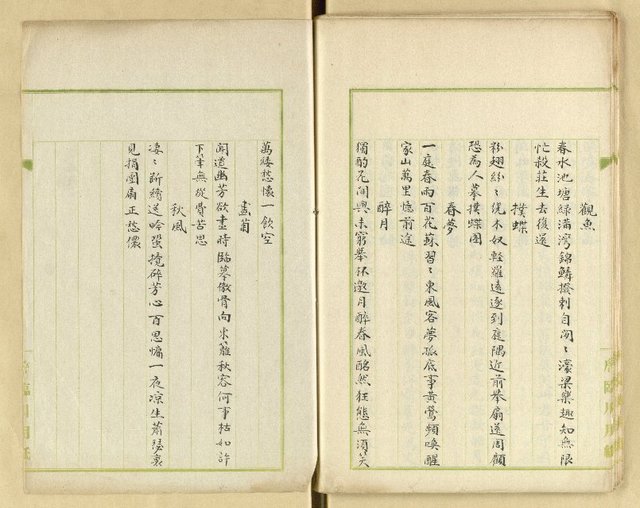 觀魚
春水池塘綠滿灣錦鱗撥剌自閒〻濠梁樂趣知無限
忙殺莊生去復還
撲蝶
粉翅絲〻繞木奴輕羅遠逐到庭隅近前舉扇還周顧
恐為人摹撲蝶圖
春夢
一庭春雨百花蘇習〻東風客夢孤底事黃鶯頻喚醒
家山萬里憶前途
醉月
獨酌花間興未窮舉杯邀月醉春風酩然狂態無須笑
萬縷愁懷一飲空
畫菊
聞道幽芳欲畫時臨摹傲骨向東籬秋容何事枯如許
下筆無從費苦思
秋風
淒〻斷續送吟蛩攪碎芳心百思慵一夜凉生蕭瑟裏
見捐團扇正愁儂